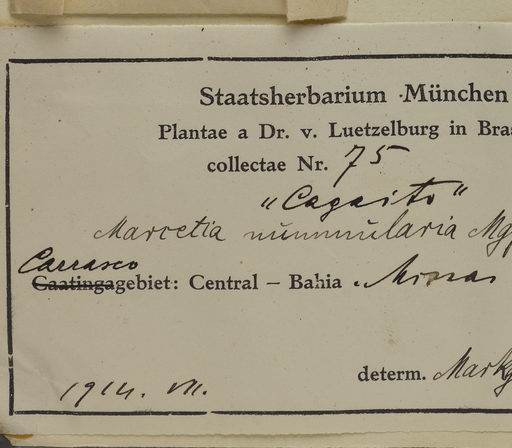 Staatsherbarium München
Plantae a Dr. v. Luetzelburg in Bras
collectae Nr. 75
"Cagaito"
Marcetia nummularia Mg
Carrasco
Caatingagebiet: Central – Bahia . Minas
determ. Markg
1914. VII.